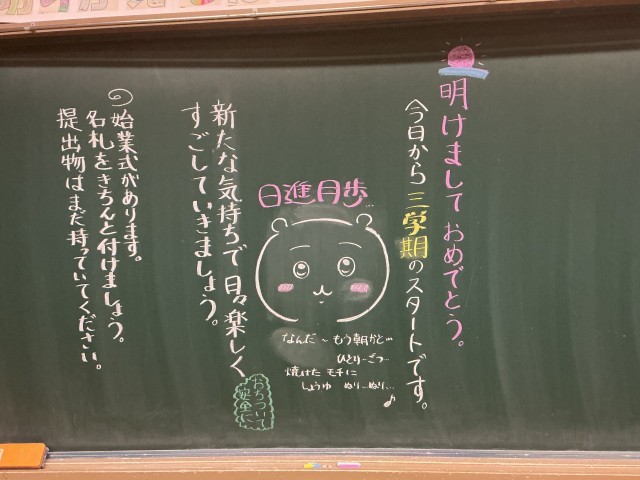 明けましておめでとう。
今日から三学期のスタートです。
日進月歩…
なんだ～もう朝かと…
ひとり…ごつ…
焼けた モチに
しょうゆ ぬり…ぬり…♪
新たな気持ちで日々楽しく
すごしていきましょう。
おちついて
安全に
始業式があります。
名札をきちんと付けましょう。
提出物はまだ持っていてください。